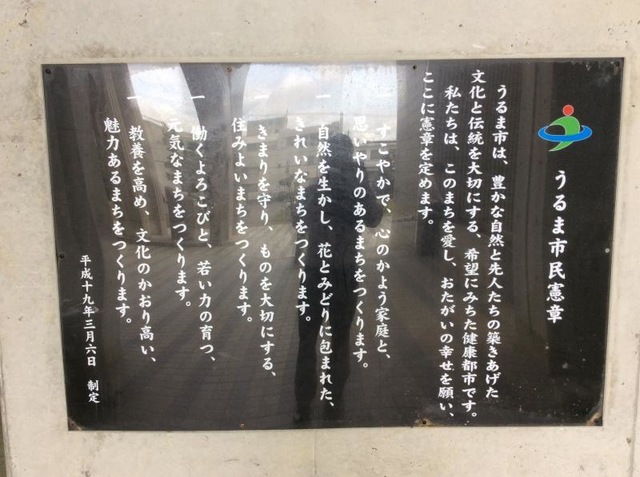 うるま市民憲章
うるま市は、豊かな自然と先人たちの築きあげた
文化と伝統を大切にする、希望にみちた健康都市です。
私たちは、このまちを愛し、おたがいの幸せを願い、
ここに憲章を定めます。
一 すこやかで、心のかよう家庭と、
思いやりのあるまちをつくります。
一 自然を生かし、花とみどりに包まれた、
きれいなまちをつくります。
一 きまりを守り、ものを大切にする、
住みよいまちをつくります。
一 働くよろこびと、若い力の育つ、
元気なまちをつくります。
一 教養を高め、文化のかおり高い、
魅力あるまちをつくります。
平成十九年三月六日 制定